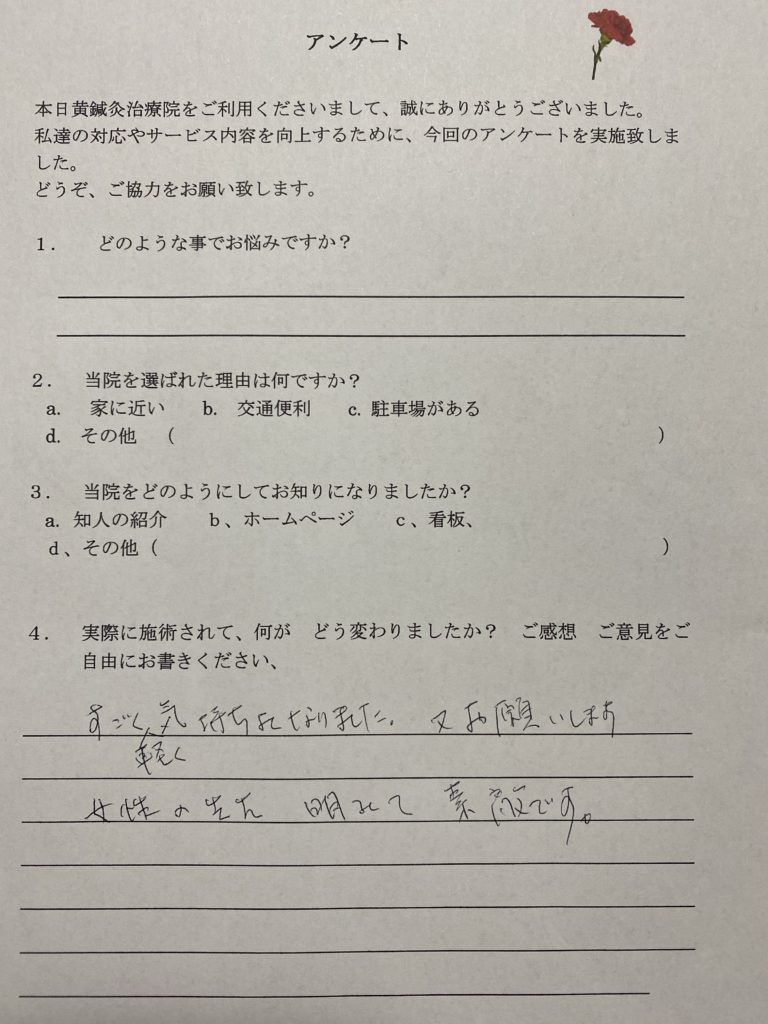 アンケート
本日黄鍼灸治療院をご利用くださいまして、誠にありがとうございました。
私達の対応やサービス内容を向上するために、今回のアンケートを実施致しま
した。
どうぞ、ご協力をお願い致します。
１．　どのような事でお悩みですか？
２．　当院を選ばれた理由は何ですか？
a.　家に近い　　b.　交通便利　　c. 駐車場がある
d.　その他　（　　　　　　　　　　　　　　　　　　　　　　　　　）
３．　当院をどのようにしてお知りになりましたか？
a. 知人の紹介　　ｂ、ホームページ　　ｃ、看板、
ｄ、その他（　　　　　　　　　　　　　　　　　　　　　　　　　　）
４．　実際に施術されて、何が　どう変わりましたか？　ご感想　ご意見をご
自由にお書きください、
すごく気持ちよくなりました。又お願いします
軽く
女性の先生　明るくて　素敵です。